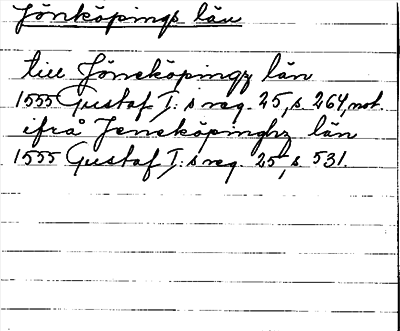 Jönköpings län
till Jöneköpingz län
1555 Gustaf I:s reg. 25, s. 264, not.
ifrå Jeneköpinghz län
1555 Gustaf I:s reg. 25, s. 531.